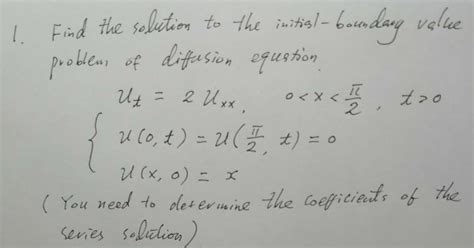 1. Find the solution to the initial-boundary value
problem of diffusion equation.
u_t = 2 u_xx, 0 < x < π/2, t > 0
{ u(0, t) = u(π/2, t) = 0
u(x, 0) = x
( You need to determine the coefficients of the
series solution )